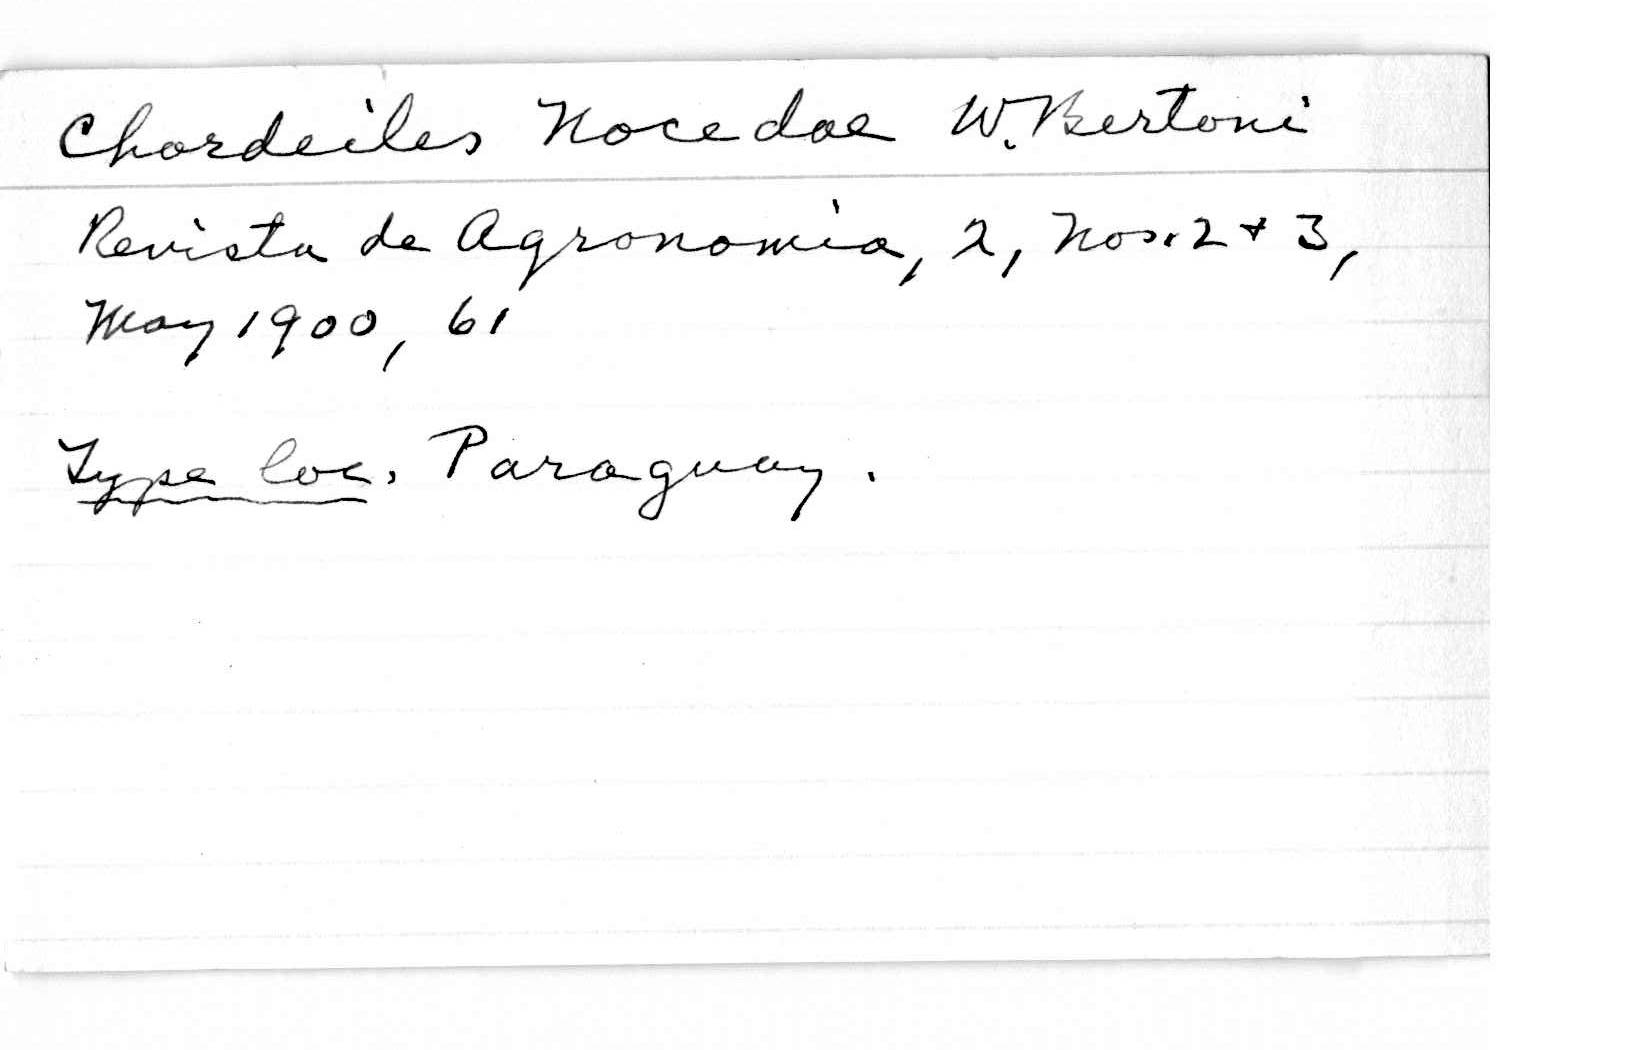 Chordeiles Nocedae W. Bertoni
Revista de Agronomia, 2, Nos. 2 + 3,
May 1900, 61
Type loc. Paraguay.